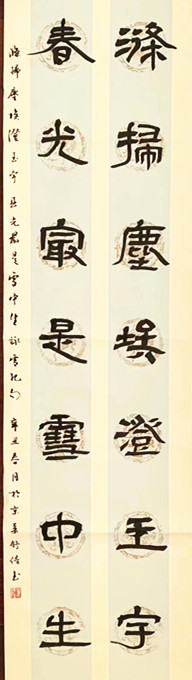 滌掃塵埃澄玉宇
春光最是雪中生
滌掃塵埃澄玉宇春光最是雪中生詠雪句辛丑春月於京書